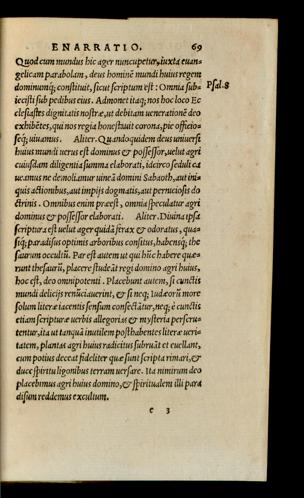 ENARRATIO. 69
Quod cum mundus hic ager nuncupetur, iuxta euan-
gelicam parabolam, deus hominē mundi huius regem
dominumq; constituit, sicut scriptum est: Omnia sub- Psal. 8
iecisti sub pedibus eius. Admonet itaq; nos hoc loco Ec
clesiastes dignitatis nostræ, ut debitam uenerationē deo
exhibētes, qui nos regia honestauit corona, pie officio-
seq; uiuamus. Aliter. Quandoquidem deus uniuersi
huius mundi uerus est dominus & possessor, uelut agri
cuiusdam diligentia summa elaborati, idcirco seduli ca
ueamus ne demoliamur uineā domini Sabaoth, aut ini-
quis actionibus, aut impijs dogmatis, aut perniciosis do
ctrinis. Omnibus enim præest, omnia speculatur agri
dominus & possessor elaborati. Aliter. Diuina ipsa
scriptura est uelut ager quidā ferax & odoratus, qua-
siq; paradisus optimis arboribus consitus, habensq; the
saurum occultū. Par est autem ut qui hūc habere quæ-
runt thesaurū, placere studeāt regi domino agri huius,
hoc est, deo omnipotenti. Placebunt autem, si cunctis
mundi delicijs renūciauerint, & si neq; Iudæorū more
solum literæ iacentis sensum consectātur, neq; è cunctis
etiam scripturæ uerbis allegorias & mysteria perscru-
tentur, ita ut tanquā inutilem posthabentes literæ ueri-
tatem, plantas agri huius radicitus subruāt et euellant,
cum potius deceat fideliter quæ sunt scripta rimari, &
duce spiritu ligonibus terram uersare. Ita nimirum deo
placebimus agri huius domino, & spiritualem illi para
disum reddemus excultum.
e 3